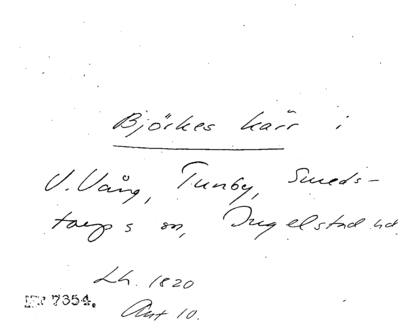 Björkes kärr i
V. Vång, Tunby, Smeds-
torps sn, Ingelstad hd.
Lh. 1820
7354.
Akt 10.